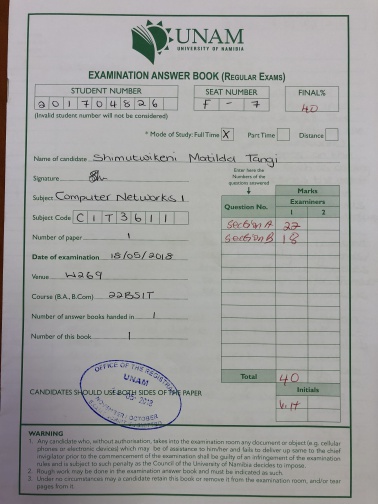 UNAM
UNIVERSITY OF NAMIBIA
EXAMINATION ANSWER BOOK (REGULAR EXAMS)
STUDENT NUMBER
201704826
(Invalid student number will not be considered)
SEAT NUMBER
F - 7
FINAL%
40
* Mode of Study: Full Time X Part Time Distance
Name of candidate Shimutwikeni Matilda Tangi
Signature
Subject Computer Networks 1
Subject Code CIT3611
Number of paper 1
Date of examination 18/05/2018
Venue W269
Course (B.A., B.Com) 22BSIT
Number of answer books handed in 1
Number of this book 1
Enter here the
Numbers of the
questions answered
Marks
Question No. Examiners
1 2
Section A 22
Section B 18
Total 40
Initials
OFFICE OF THE REGISTRAR
UNAM
2018
CANDIDATES SHOULD USE BOTH SIDES OF THE PAPER
WARNING
1. Any candidate who, without authorization, takes into the examination room any document or object (e.g. cellular
phones or electronic devices) which may be of assistance to him/her and fails to deliver up same to the chief
invigilator prior to the commencement of the examination shall be guilty of an infringement of the examination
rules and is subject to such penalty as the Council of the University of Namibia decides to impose.
2. Rough work may be done in the examination answer book and must be indicated as such.
3. Under no circumstances may a candidate retain this book or remove it from the examination room, and/or tear
pages from it.